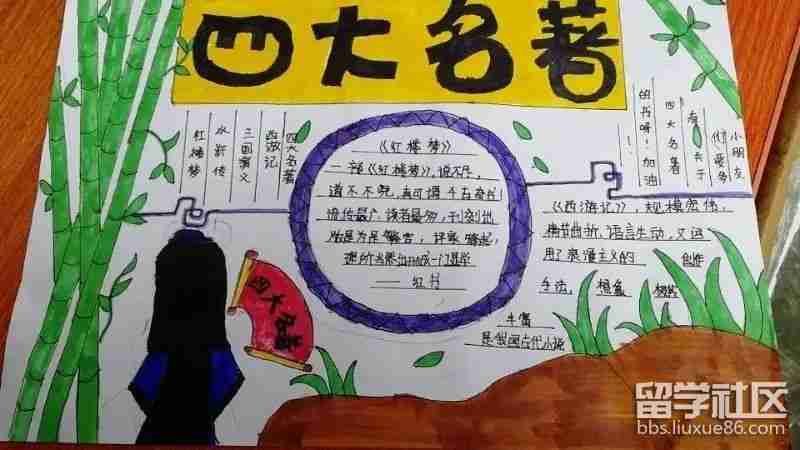 四大名著
四大名著
西游记
三国演义
水浒传
红楼梦
小朋友
们要多
看关于
四大名著
的书呀！加油
！
《红楼梦》
一部《红楼梦》，说不尽，
道不不晓，真可谓千古奇书！
流传最广，读者最多，刊刻出
红书
《西游记》，规模宏伟，
情节曲折，语言生动，又运
用了浪漫主义的 创作
手法，想象 构
丰富
是我国古代小说
四大名著
留学社区
bbs.liuxue86.com